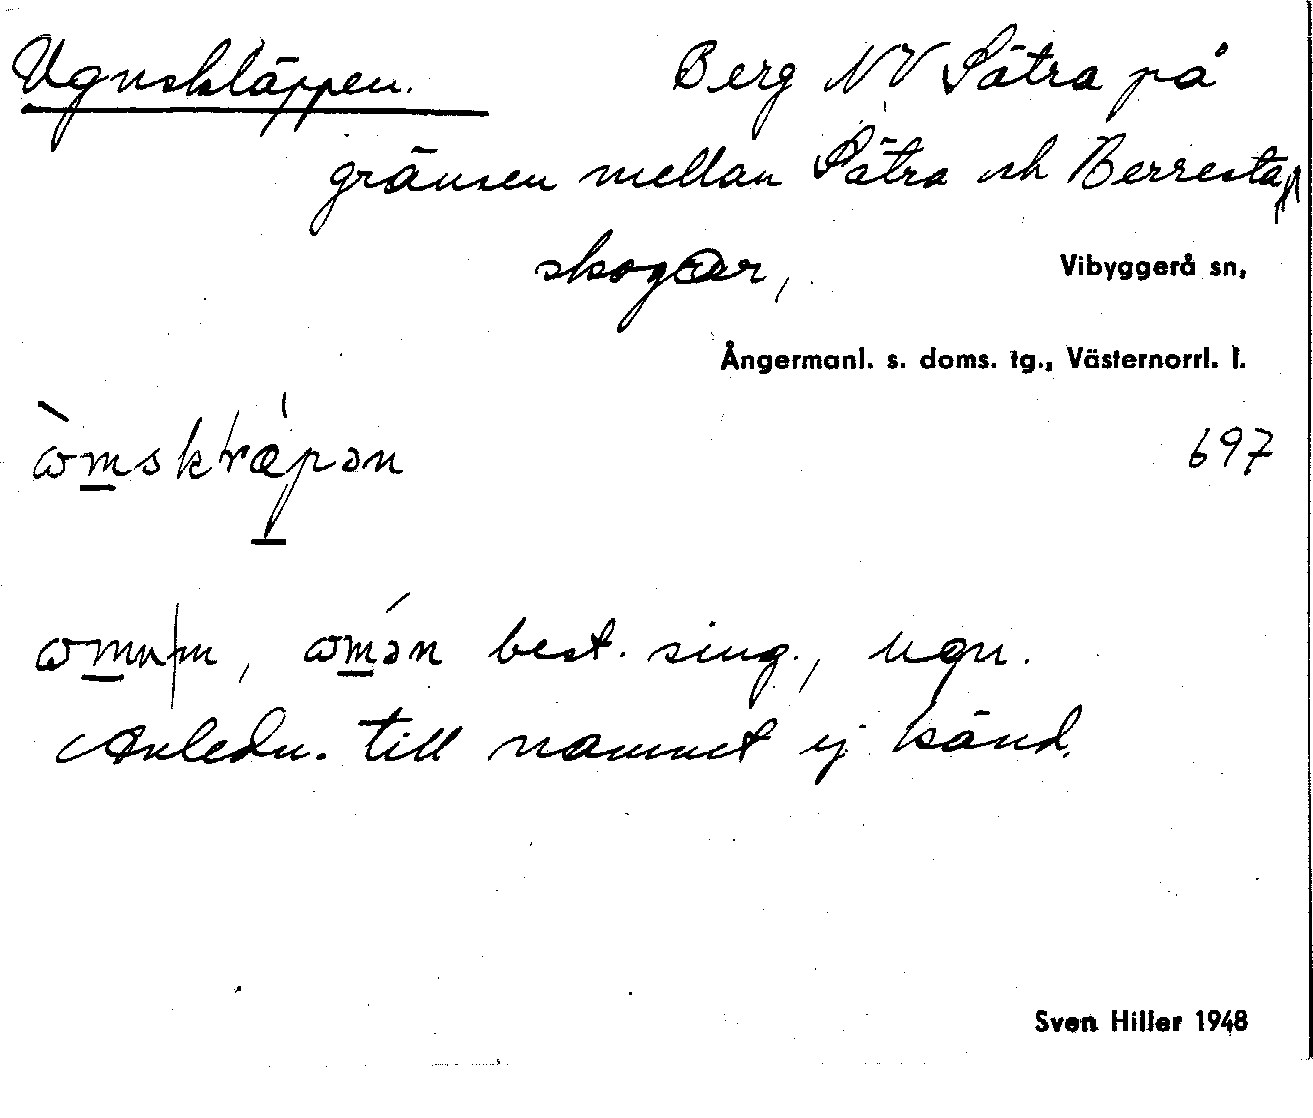 Ugnskläppen. Berg NV Sätra på
gränsen mellan Sätra och Berresta
skogar,
Vibyggerå sn,
Ångermanl. s. doms. tg., Västernorrl. l.
697
best. sing., ugn.
Anledn. till namnet ej känd.
Sven Hiller 1948